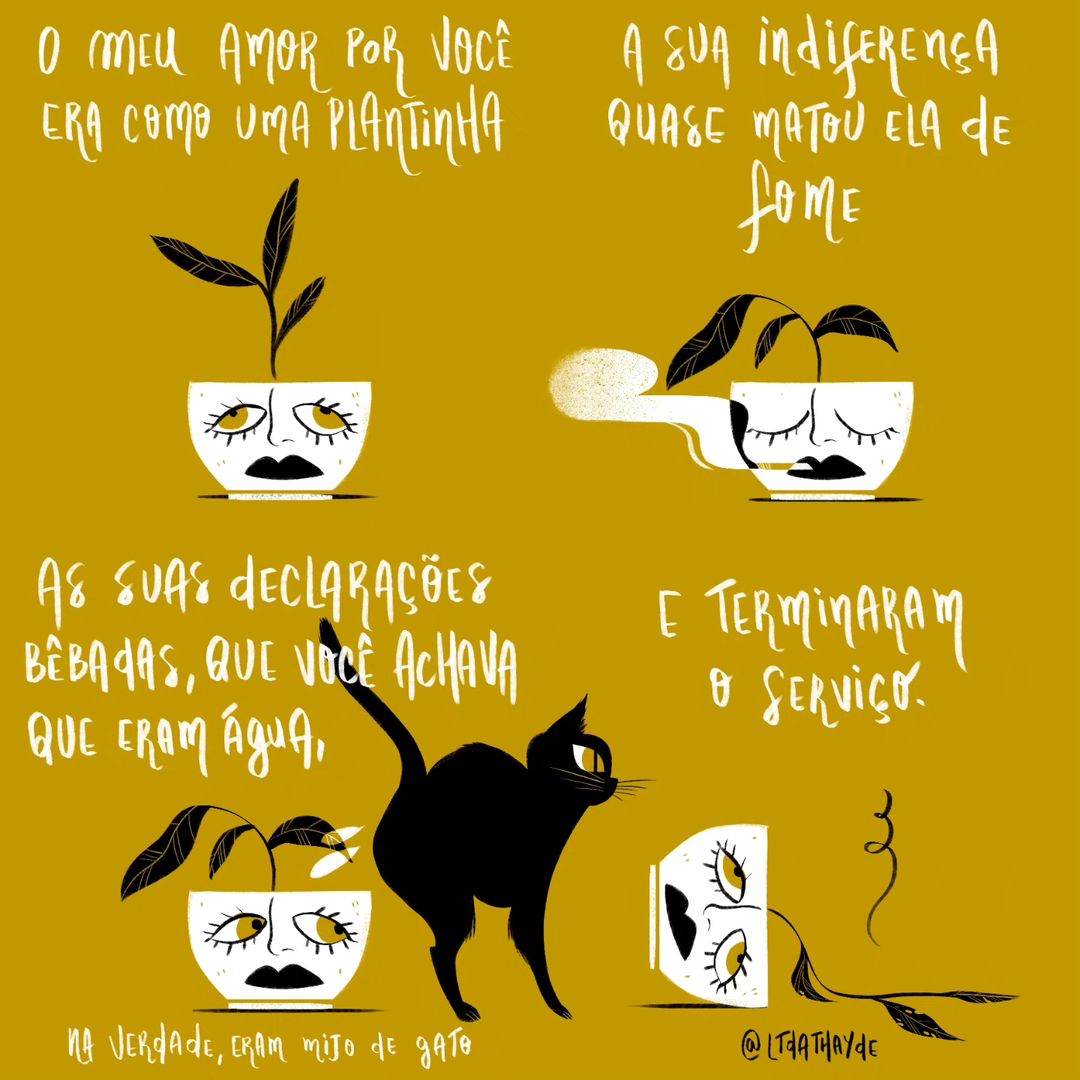 O MEU AMOR POR VOCÊ
ERA COMO UMA PLANTINHA
A SUA INDIFERENÇA
QUASE MATOU ELA DE
FOME
AS SUAS DECLARAÇÕES
BÊBADAS, QUE VOCÊ ACHAVA
QUE ERAM ÁGUA,
NA VERDADE, ERAM MIJO DE GATO
E TERMINARAM
O SERVIÇO.
@LTDATHAYDE